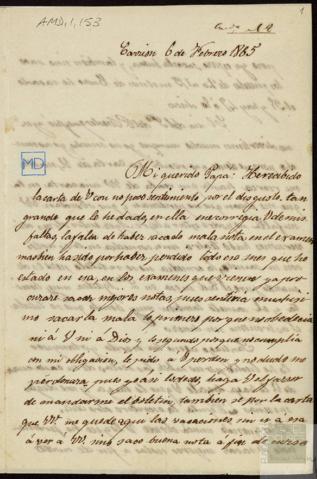 AMD, 1, 153
1
Carrión 6 de Febrero 1885
MD
Mi querido Papa: He recibido
la carta de V. con no poco sentimiento por el disgusto tan
grande que le he dado, en ella me corrigia V. de mis
faltas, la falta de haber sacado mala nota en el examen
mas bien ha sido por haber perdido todo ese mes que he
estado en esa, en los examenes que vienen ya pro-
curaré sacar mejores notas, pues sentiria muchisi-
mo sacarla mala lo primero por que no obedecia
ni á V ni a Dios y lo segundo por que no cumplia
con mi obligacion, le pido a V perdon y no dudo me
perdonara, pues yo asi lo deseo, haga V el favor
de mandarme el boletin, tambien se por la carta
que V. me quede aqui las vacaciones sin ir á esa
á ver á VV. si no saco buena nota á fin de curso